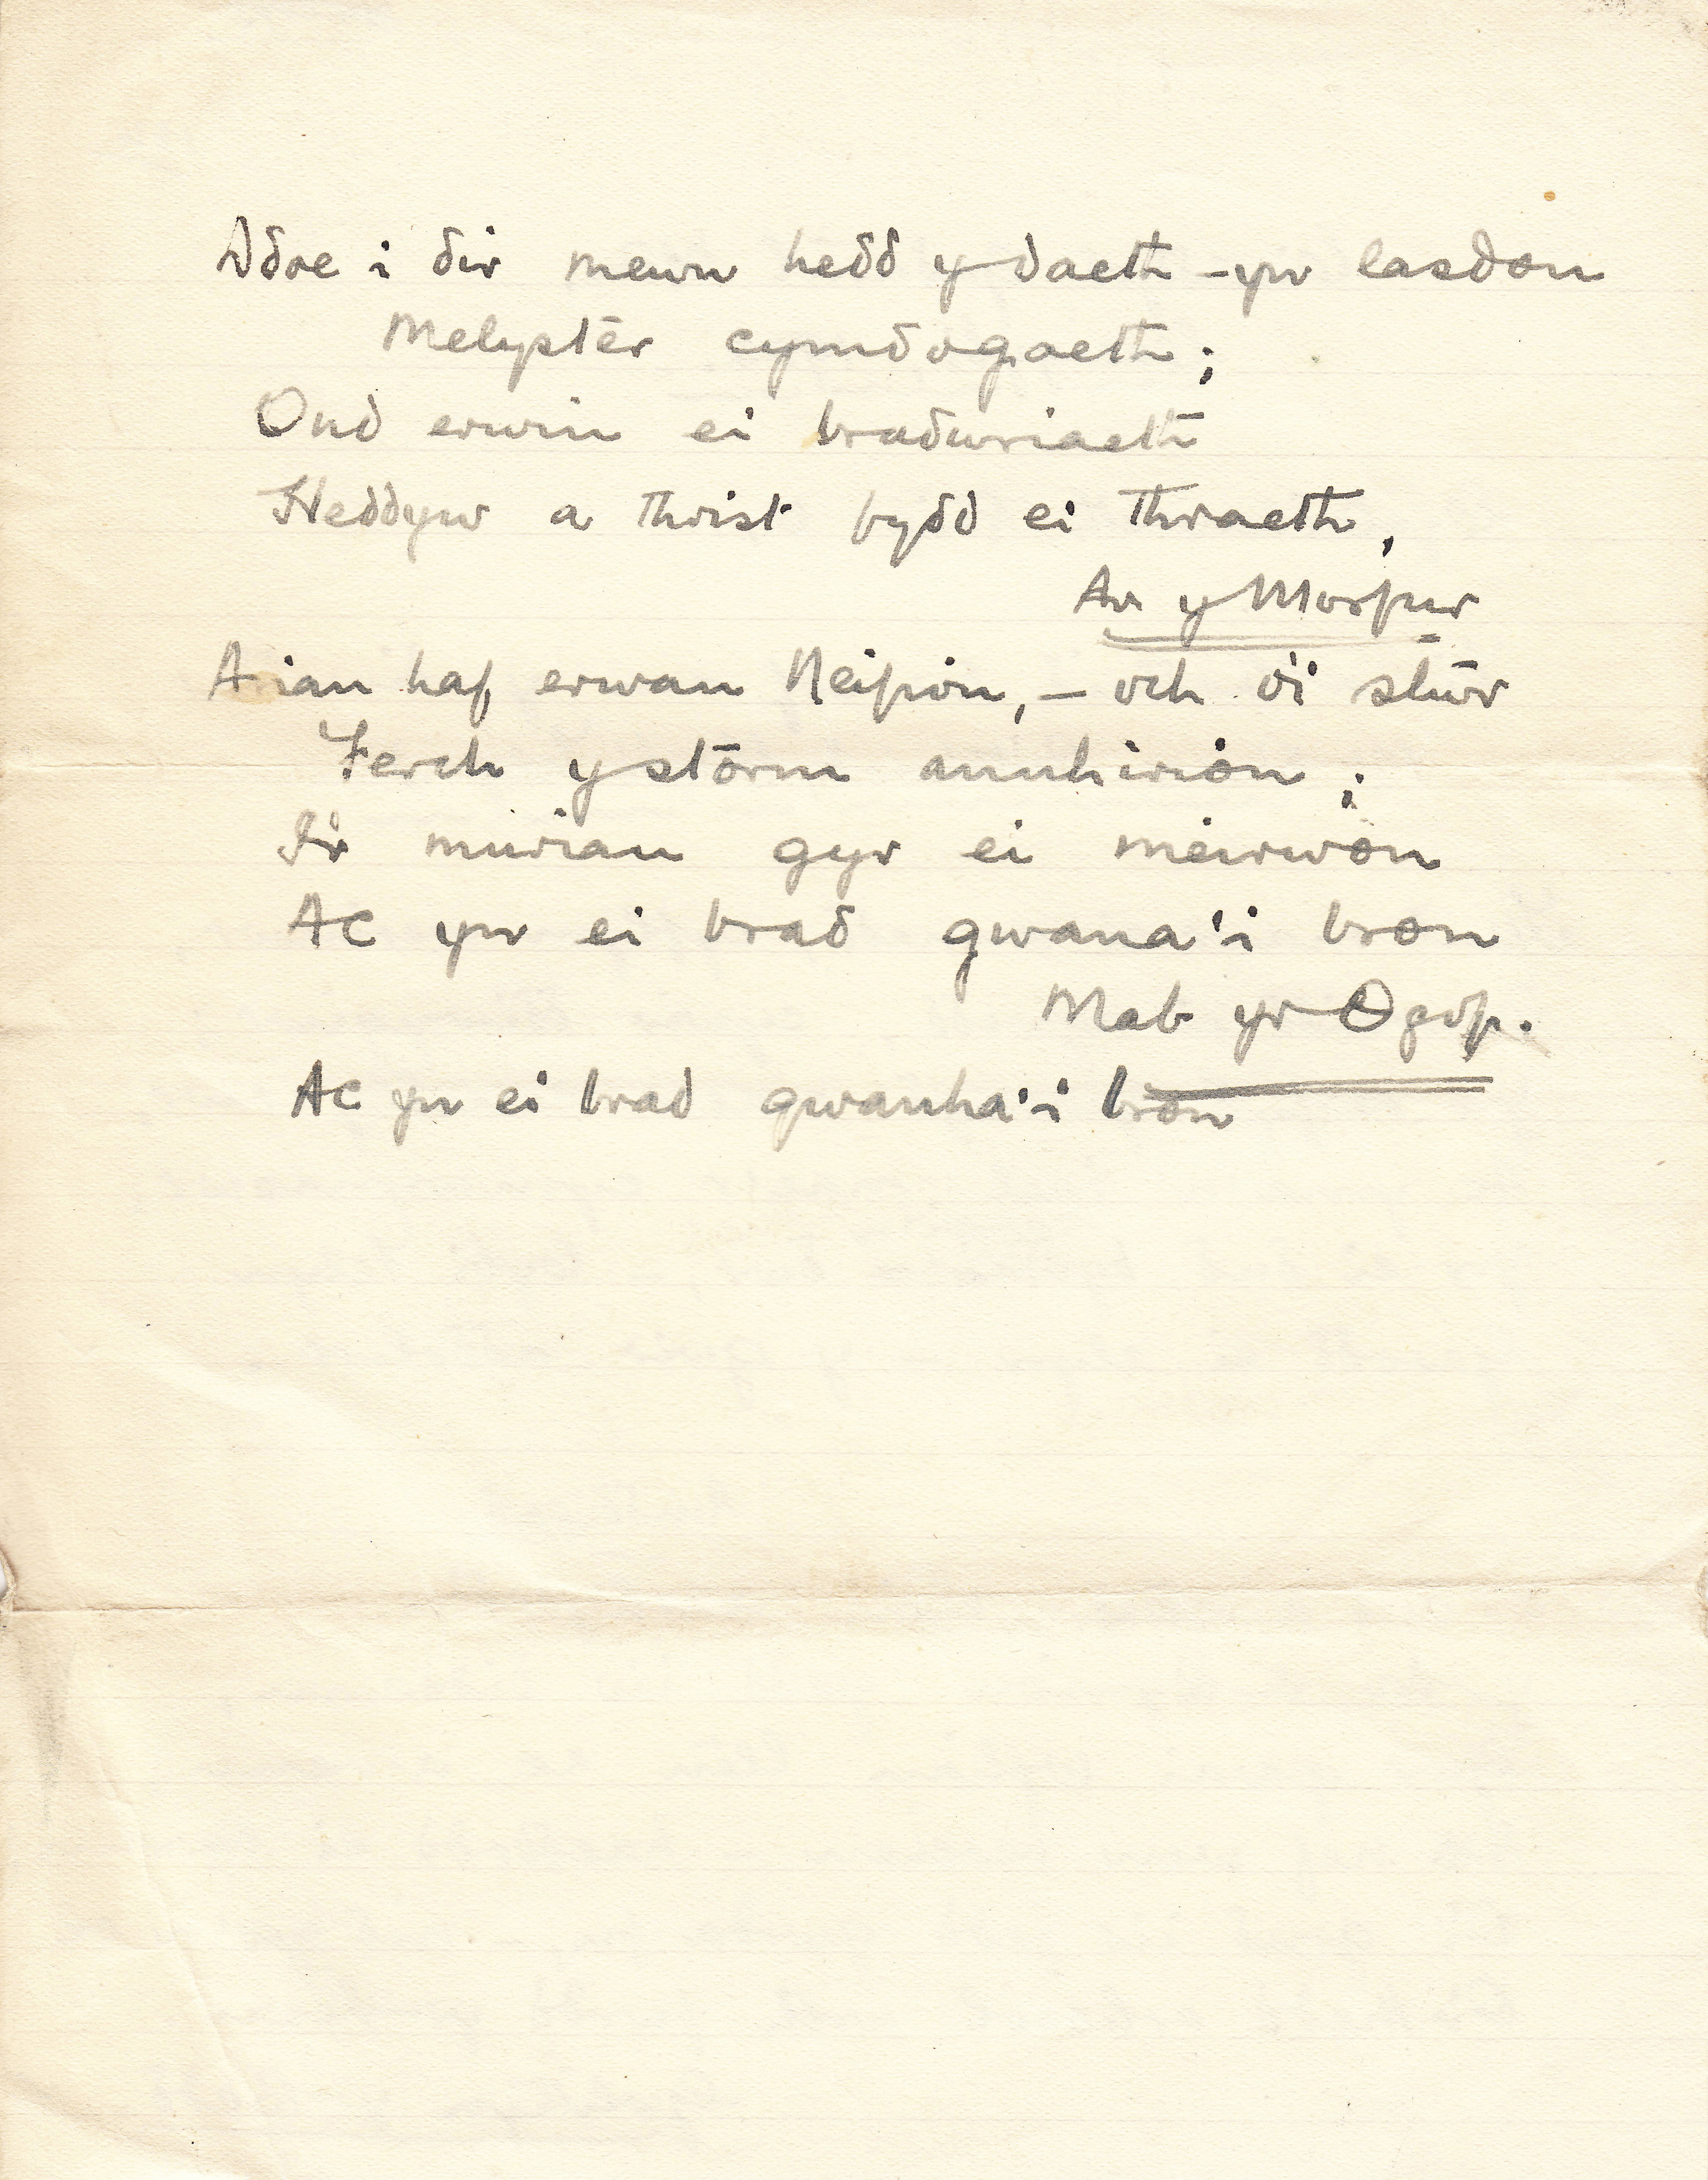 Adre i dir mewn hedd y daeth – yn lasdon
Melyster cymdogaeth;
Ond erwin ei bradwriaeth
Heddyw a thrist bydd ei thraeth,
Ar y Morfur
Arian haf erwan Neifion, – och o'i stŵr
Ferch y storm annhirion;
I'r murian gyr ei meirwon
Ac yn ei brad gwana'i bron
Mab yr Ogof.
Ac yn ei brad gwanha'i bron